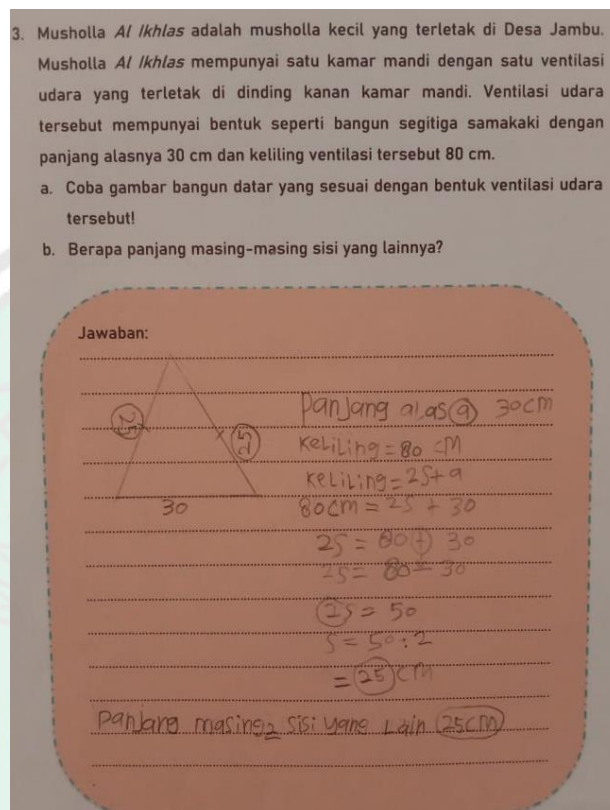 3. Musholla Al Ikhlas adalah musholla kecil yang terletak di Desa Jambu.
Musholla Al Ikhlas mempunyai satu kamar mandi dengan satu ventilasi
udara yang terletak di dinding kanan kamar mandi. Ventilasi udara
tersebut mempunyai bentuk seperti bangun segitiga samakaki dengan
panjang alasnya 30 cm dan keliling ventilasi tersebut 80 cm.
a. Coba gambar bangun datar yang sesuai dengan bentuk ventilasi udara
tersebut!
b. Berapa panjang masing-masing sisi yang lainnya?
Jawaban:
25
25
30
Panjang alas (a) 30cm
Keliling = 80 cm
Keliling = 2s+a
80cm = 2s + 30
2s = 80 + 30
2s = 80 - 30
2s = 50
s = 50 : 2
= 25 cm
Panjang masing2 sisi yang lain 25cm